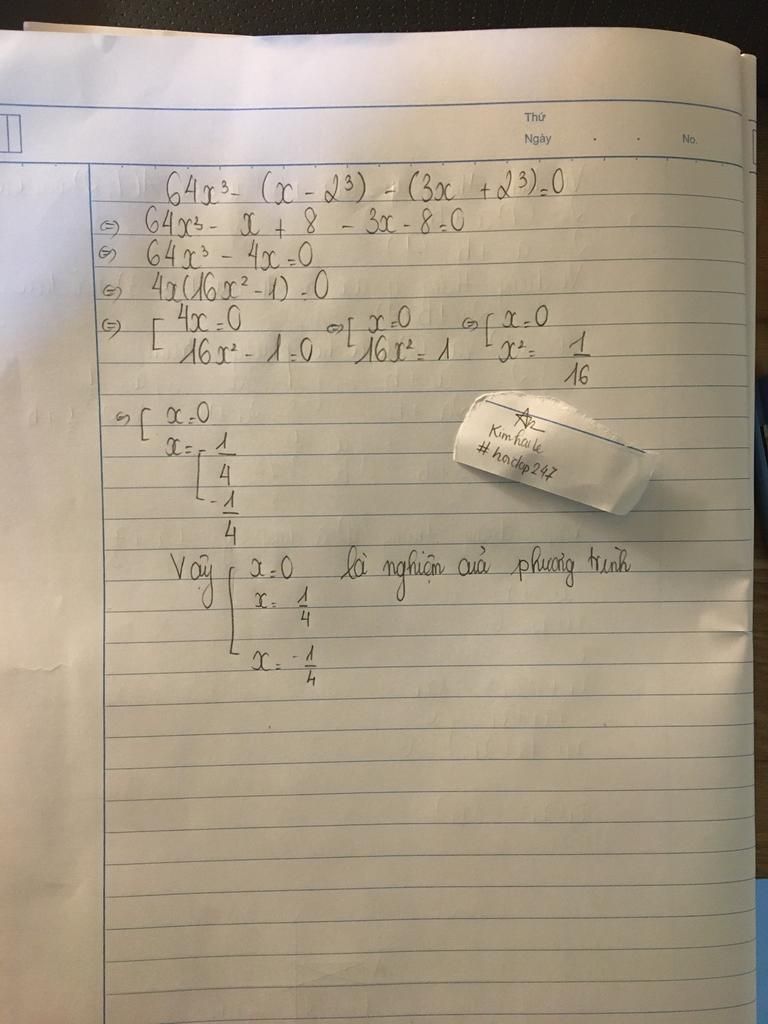 Thứ
Ngày . . No.
64x³ - (x - 2³) - (3x + 2³) = 0
⇔ 64x³ - x + 8 - 3x - 8 = 0
⇔ 64x³ - 4x = 0
⇔ 4x(16x² - 1) = 0
⇔ [ 4x = 0 ⇔ [ x = 0 ⇔ [ x = 0
16x² - 1 = 0 16x² = 1 x² = 1/16
⇔ [ x = 0
x = [ 1/4
- 1/4
Kimhaule
#hoidap247
Vậy [ x = 0 là nghiệm của phương trình
x = 1/4
x = - 1/4